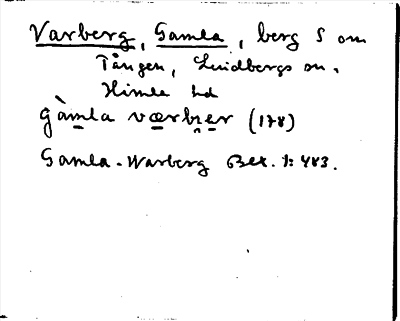 Varberg, Gamla, berg S om
Tången, Lindbergs sn.
Himle hd
gàmla værbær (178)
Gamla-Warberg Bex. 1: 483.